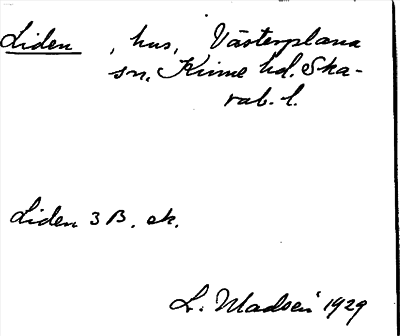 Liden , hus, Västerplana
sn, Kinne hd. Ska-
rab. l.
Liden 3 B. ek.
L. Madsén 1929